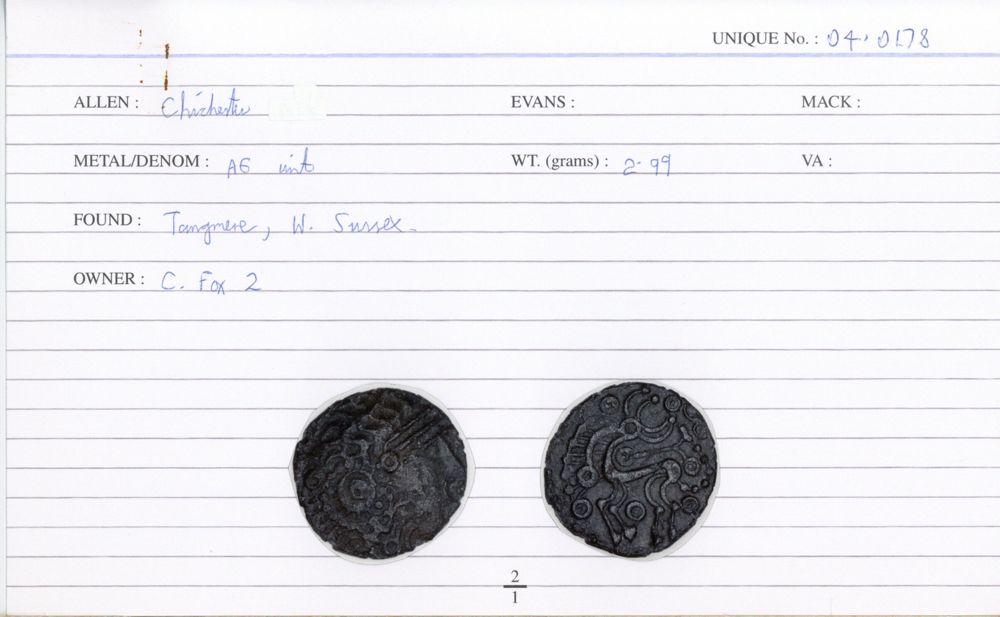 UNIQUE No. : 04.0178
ALLEN : Chichester EVANS : MACK :
METAL/DENOM : AE unit WT. (grams) : 2.99 VA :
FOUND : Tangmere, W. Sussex.
OWNER : C. Fox 2
2
1